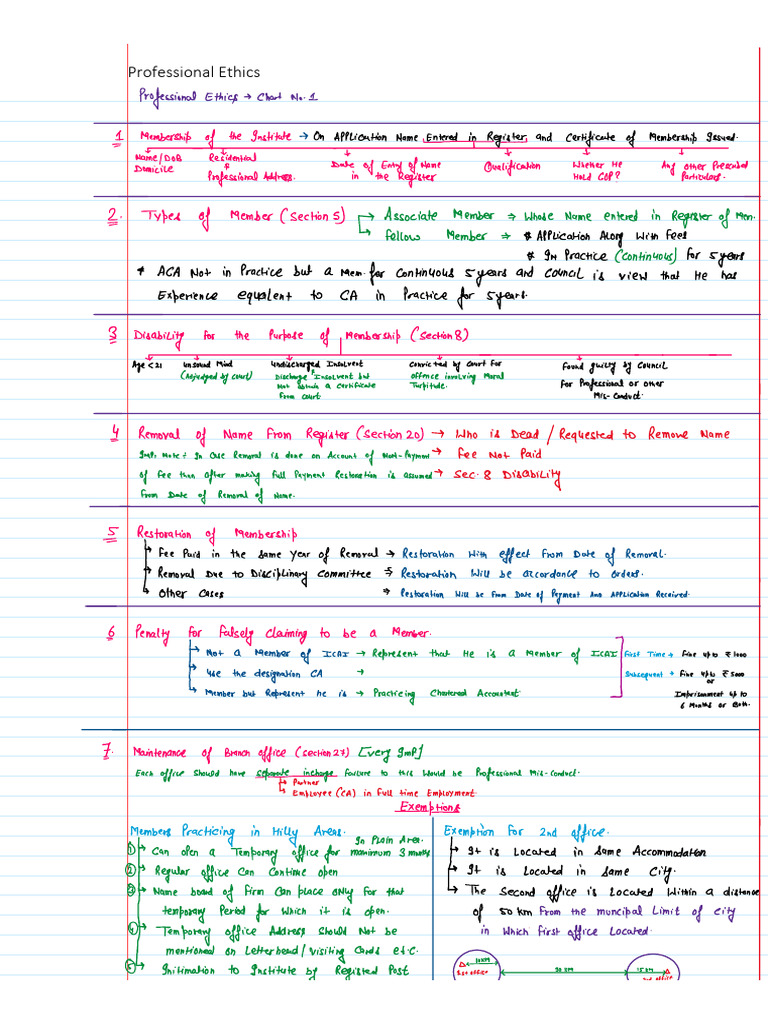 Professional Ethics
Professional Ethics → Chart No. 1
1 Membership of the Institute → On Application Name Entered in Register and Certificate of Membership Issued.
Name/DOB Domicile
Residential & Professional Address.
Date of Entry of Name in the Register
Qualification
Whether He Hold COP?
Any other Prescribed Particulars.
2. Types of Member (Section 5) → Associate Member ⇒ Whose Name entered in Register of Mem.
→ Fellow Member ⇒ * Application Along With Fees
* In Practice (Continuous) For 5 years
* ACA Not in Practice but a Mem. for Continuous 5 years and Council is view that He has
Experience equalent to CA in Practice for 5 years.
3 Disability for the Purpose of Membership (Section 8)
Age < 21
Unsound Mind (Adjudged by Court)
Undischarged Insolvent
Discharge Insolvent but Not obtain a Certificate From Court
Convicted by Court For offence involving Moral Turpitude.
Found guilty by Council For Professional or other Mis-Conduct.
4 Removal of Name From Register (Section 20) → Who is Dead / Requested to Remove Name
Imp. Note: In Case Removal is done on Account of Non-Payment → Fee Not Paid
of Fee then After making Full Payment Restoration is assumed → Sec. 8 Disability
From Date of Removal of Name.
5 Restoration of Membership
→ Fee Paid in the Same Year of Removal → Restoration With effect From Date of Removal.
→ Removal Due to Disciplinary Committee → Restoration Will be accordance to Orders.
→ Other Cases → Restoration Will be From Date of Payment And Application Received.
6 Penalty for Falsely Claiming to be a Member.
→ Not a Member of ICAI → Represent that He is a Member of ICAI
→ Use the designation CA →
→ Member but Represent he is → Practicing Chartered Accountant
First Time → Fine upto ₹1000
Subsequent → Fine upto ₹5000
or
Imprisonment upto
6 Months or Both.
7. Maintenance of Branch office (Section 27) [Very Imp]
Each office Should have separate incharge failure to this Would be Professional Mis-Conduct.
→ Partner
→ Employee (CA) in Full time Employment
Exemptions
Members Practicing in Hilly Areas.
In Plain Area.
① → Can open a Temporary office for maximum 3 months
② → Regular office Can Continue open
③ → Name board of Firm Can place only for that
temporary Period for Which it is open.
④ → Temporary office Address Should Not be
mentioned on Letterhead/Visiting Cards etc.
⑤ → Initimation to Institute by Registered Post
Exemption For 2nd office.
→ It is Located in Same Accommodation
→ It is Located in Same City.
→ The Second office is Located Within a distance
of 50 km From the muncipal Limit of City
in Which First office Located.
10 KM
1st office
50 KM
15 KM
2nd office